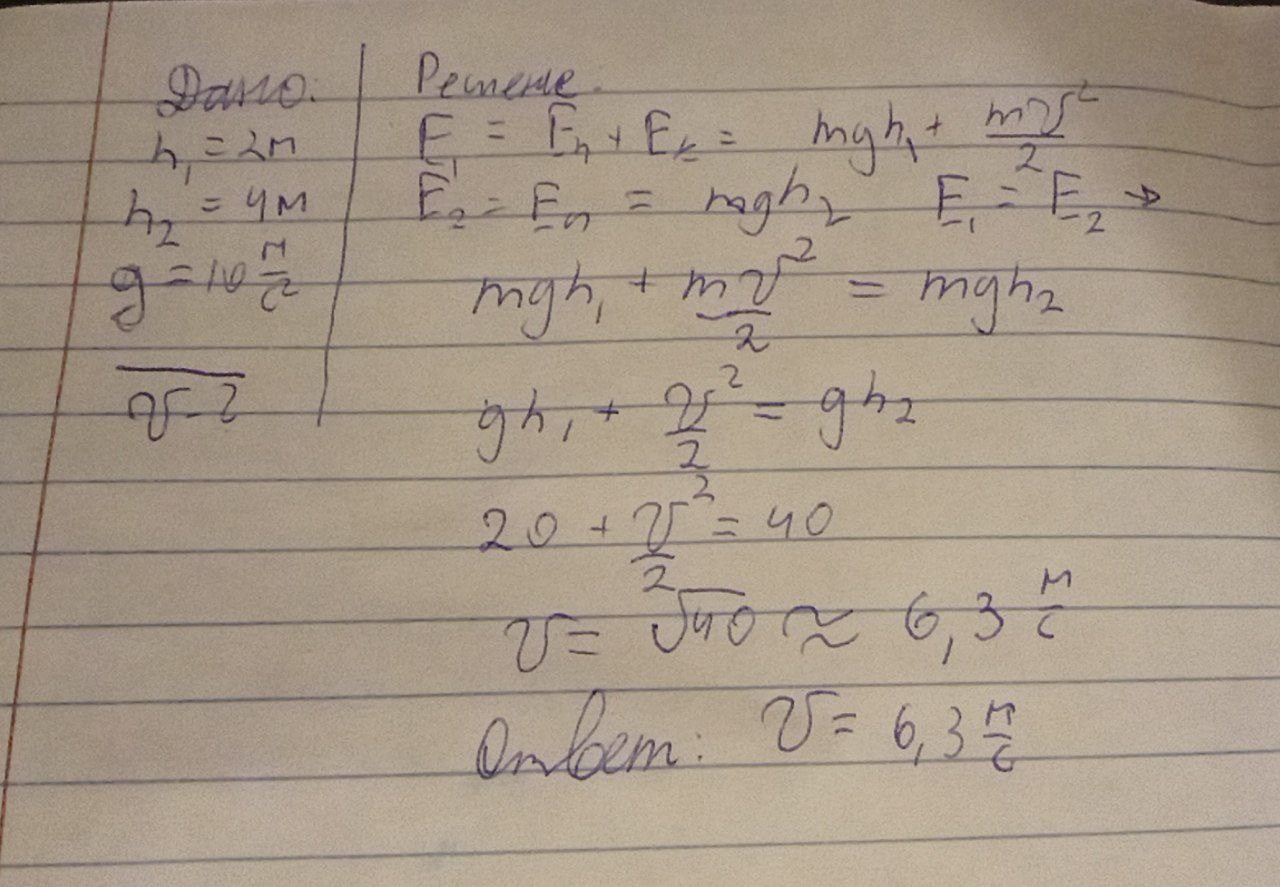 Дано:
h₁ = 2м
h₂ = 4м
g = 10 м/с²
v - ?
Решение.
E₁ = Eп + Eк = mgh₁ + mv²/2
E₂ = Eп = mgh₂ E₁ = E₂ →
mgh₁ + mv²/2 = mgh₂
gh₁ + v²/2 = gh₂
20 + v²/2 = 40
v = √40 ≈ 6,3 м/с
Ответ: v = 6,3 м/с